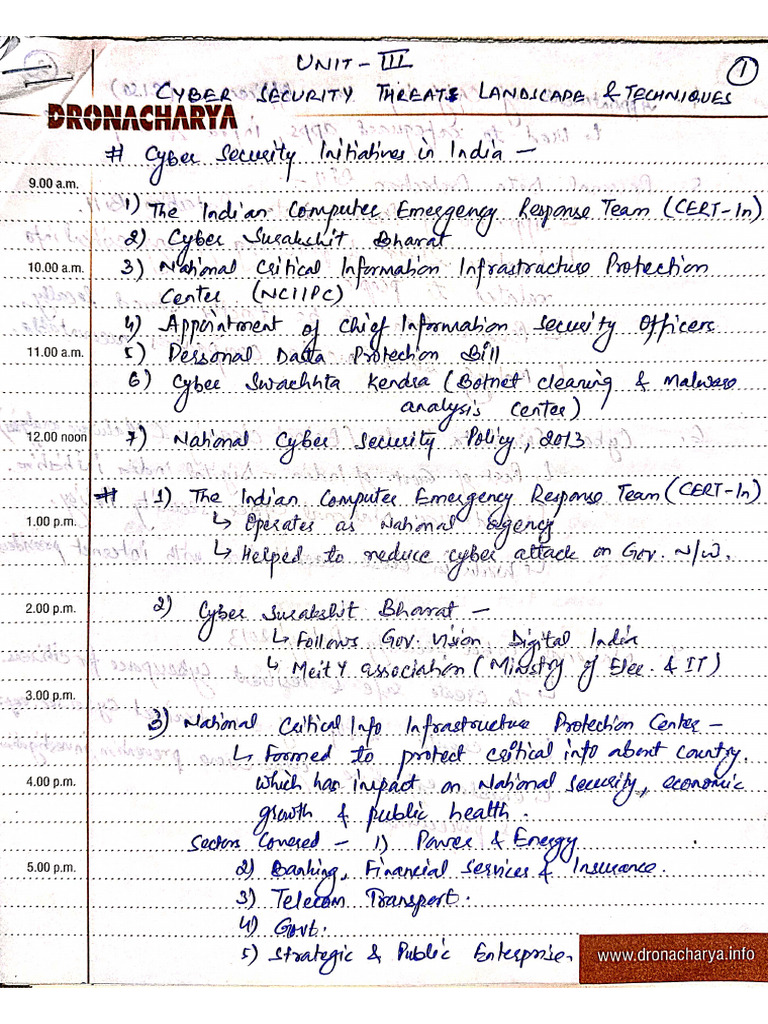 UNIT-III
1
CYBER SECURITY THREATS LANDSCAPE & TECHNIQUES
DRONACHARYA
# Cyber Security Initiatives in India -
9.00 a.m.
1) The Indian Computer Emergency Response Team (CERT-In)
2) Cyber Surakshit Bharat
10.00 a.m. 3) National Critical Information Infrastructure Protection
Center (NCIIPC)
4) Appointment of Chief Information Security Officers
11.00 a.m. 5) Personal Data Protection Bill
6) Cyber Swachhta Kendra (Botnet cleaning & Malware
analysis center)
12.00 noon 7) National Cyber Security Policy, 2013
# 1) The Indian Computer Emergency Response Team (CERT-In)
1.00 p.m. ↳ Operates as National agency
↳ Helped to reduce cyber attack on Gov. N/W.
2.00 p.m. 2) Cyber Surakshit Bharat -
↳ Follows Gov. vision Digital India
↳ Meit Y association (Ministry of Elec. & IT)
3.00 p.m.
3) National Critical Info Infrastructure Protection Center -
↳ Formed to protect critical info about country.
4.00 p.m. which has impact on National security, economic
growth & public health.
Sectors Covered - 1) Power & Energy
5.00 p.m. 2) Banking, Financial Services & Insurance.
3) Telecom Transport.
4) Govt.
5) Strategic & Public Enterprise.
www.dronacharya.info